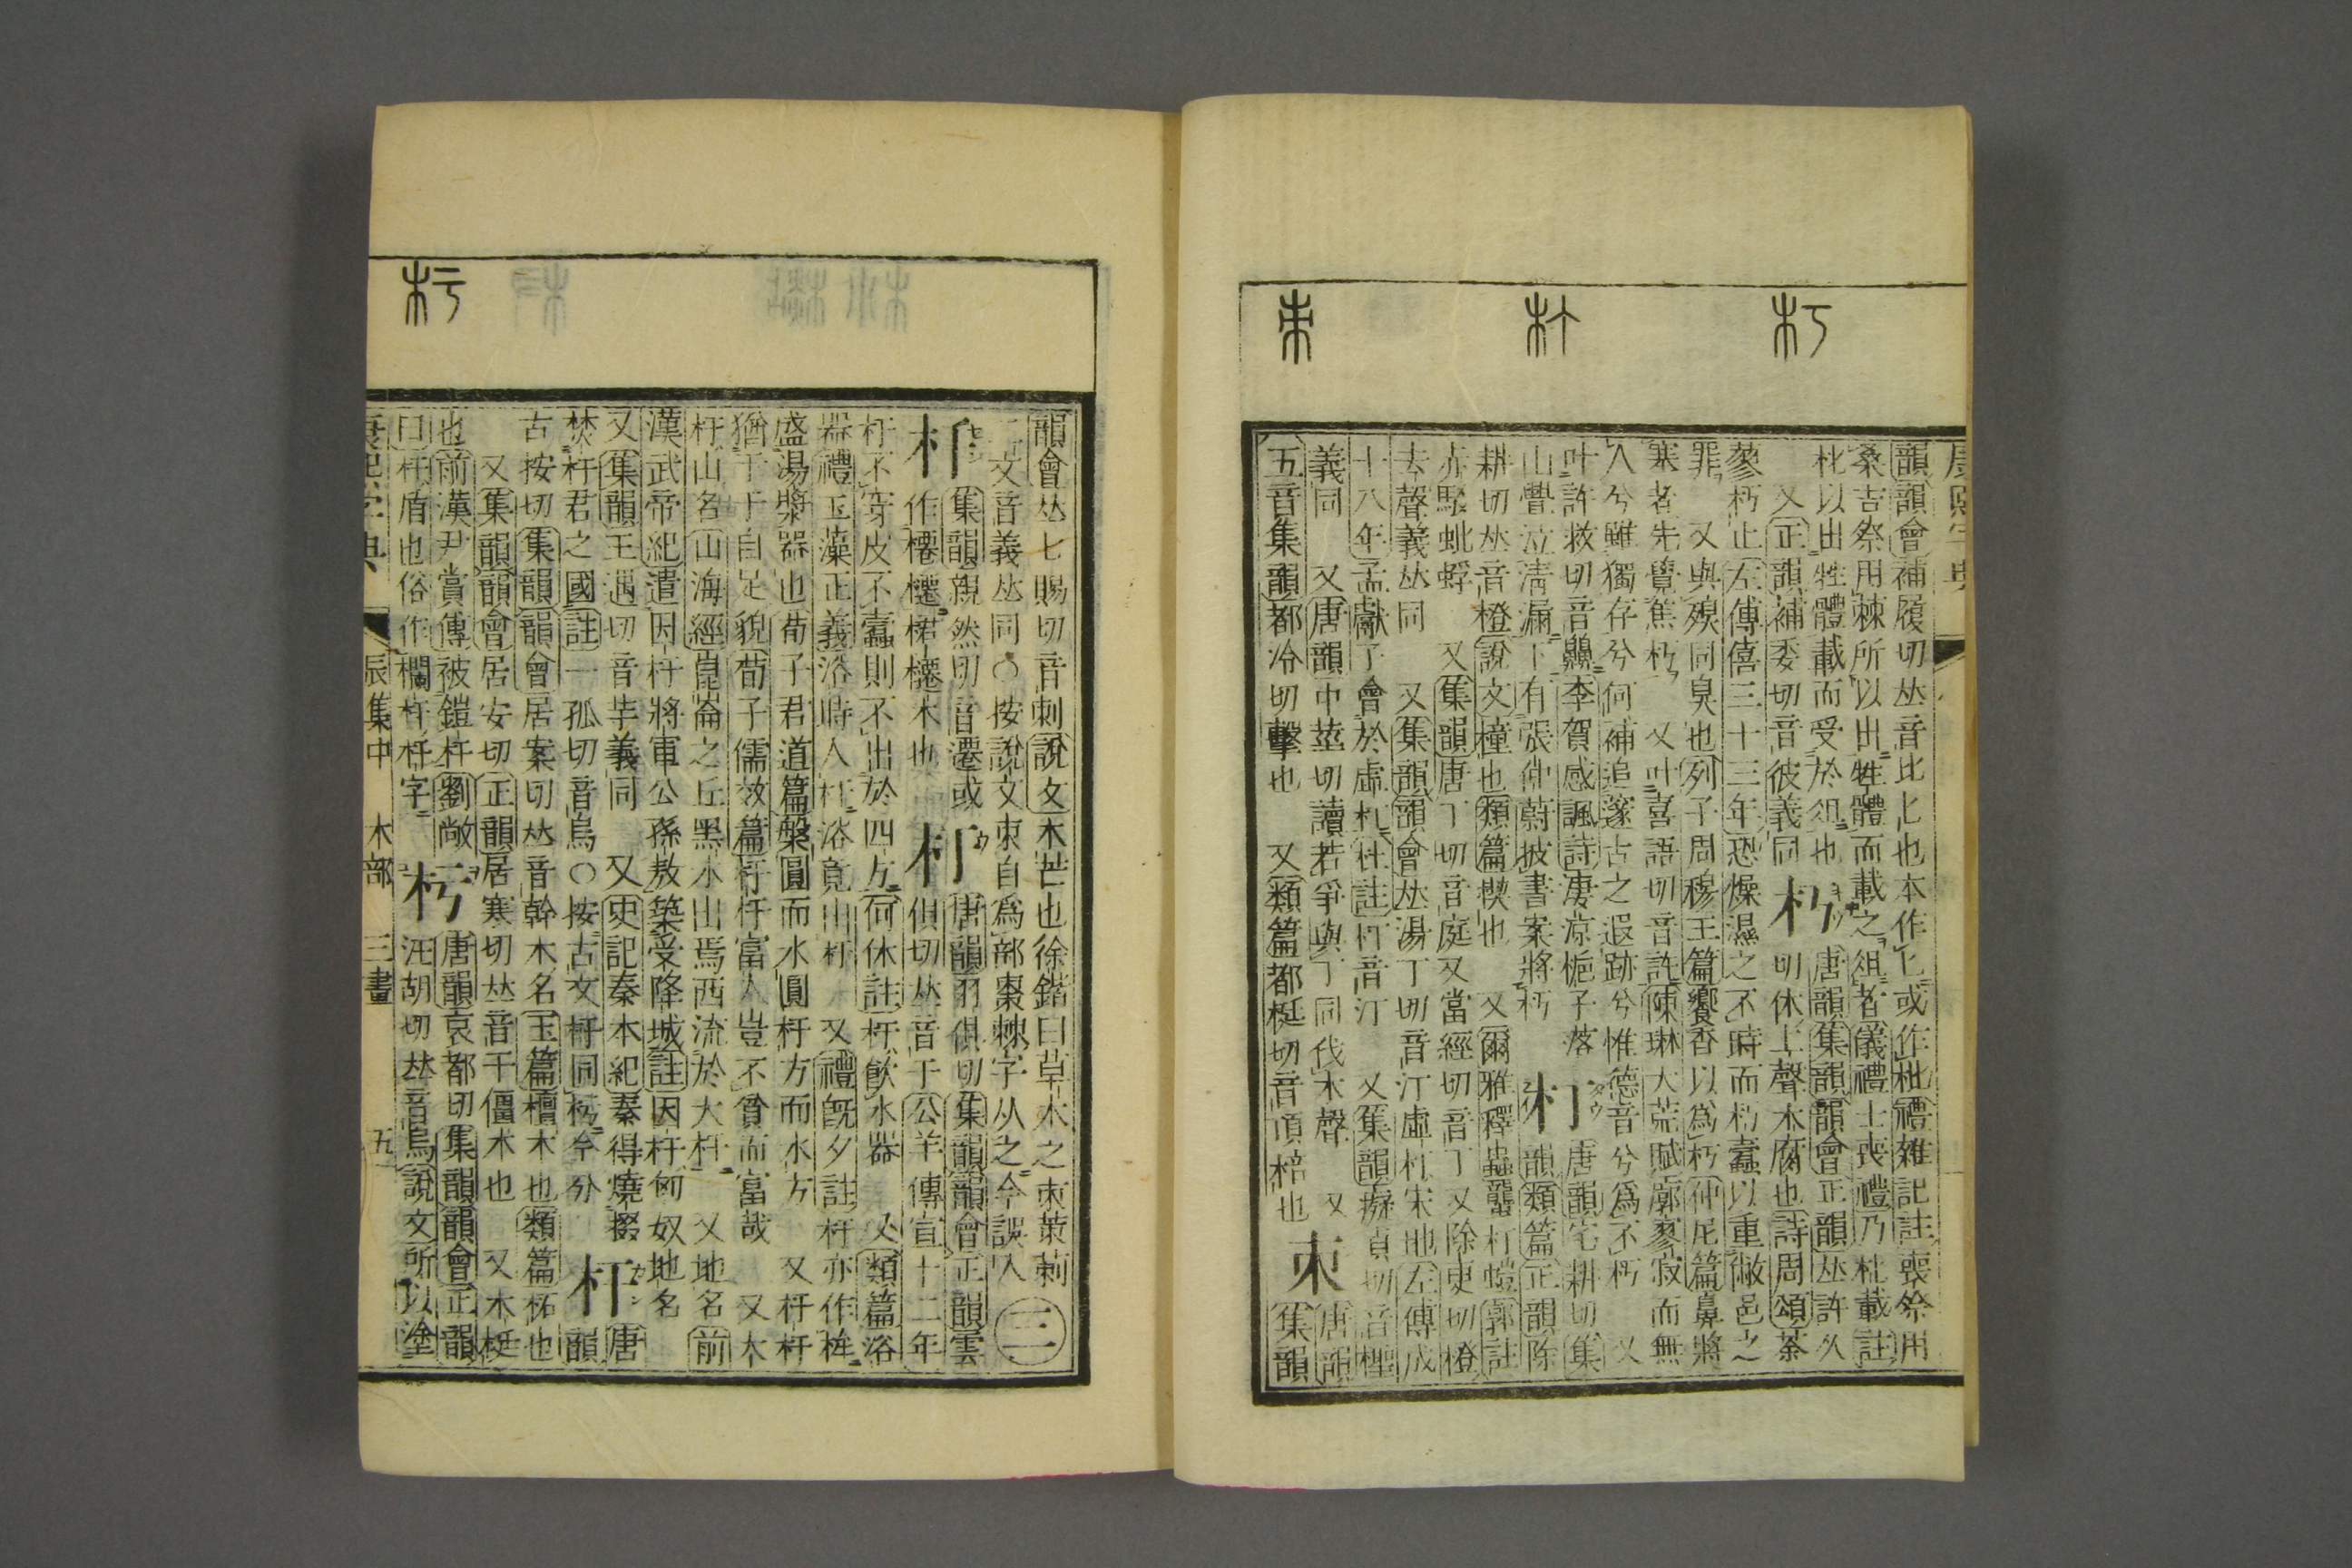 朽
朾
朿
韻韻會補履切𠀤音比匕也本作匕或作枇禮雜記註喪祭用
桑吉祭用棘所以出牲體而載之俎者儀禮士喪禮乃朼載註
朼以出牲體載而受於俎也
又正韻補委切音彼義同
朽
唐韻集韻韻會正韻𠀤許久
切休上聲木腐也詩周頌荼
蓼朽止左傳僖三十三年恐燥濕之不時而朽蠹以重敝邑之
罪 又與殠同臭也列子周穆王篇饗香以爲朽仲尼篇鼻將
窒者先覺焦朽 又叶喜語切音許陳琳大荒賦廓寥寂而無
人兮雖獨存兮何補追邃古之遐跡兮惟德音兮爲不朽 又
叶許救切音齅李賀感諷詩凄涼梔子落
山璺泣淸漏下有張仲蔚披書案將朽
朾
唐韻宅耕切集
韻類篇正韻除
耕切𠀤音橙說文橦也類篇楔也 又爾雅釋蟲蠪朾螘郭註
赤駁蚍蜉 又集韻唐丁切音庭又當經切音丁又除更切橙
去聲義𠀤同 又集韻韻會𠀤湯丁切音汀虛朾宋地左傳成
十八年孟獻子會於虛朾杜註朾音汀 又集韻癡貞切音檉
義同 又唐韻中莖切讀若爭與丁同伐木聲 又
五音集韻都冷切擊也 又類篇都梃切音頂棓也
朿
唐韻
集韻
杅
韻會𠀤七賜切音刺說文木芒也徐鍇曰草木之朿莿
二文音義𠀤同○按說文朿自爲部棗棘字从之今誤入
三
杄
集韻親然切音遷或
作櫏櫏楉櫏木也
杅
唐韻羽俱切集韻韻會正韻雲
俱切𠀤音于公羊傳宣十二年
杅不穿皮不蠹則不出於四方何休註杅飮水器 又類篇浴
器禮玉藻正義浴時入杅浴竟出杅 又禮旣夕註杅亦作桙
盛湯漿器也荀子君道篇槃圓而水圓杅方而水方 又杅杅
猶于于自足貌荀子儒效篇杅杅富人豈不貧而富哉 又木
杅山名山海經崑崙之丘黑水出焉西流於大杅 又地名前
漢武帝紀遣因杅將軍公孫敖築受降城註因杅匈奴地名
又集韻王遇切音芋義同 又史記秦本紀秦得燒掇
焚杅君之國註一孤切音烏○按古文杅同杇今分
杆
唐
韻
古按切集韻韻會居案切𠀤音幹木名玉篇檀木也類篇柘也
又集韻韻會居安切正韻居寒切𠀤音干僵木也 又木梃
也前漢尹賞傳被鎧杆劉敞
曰杆盾也俗作欄杆杆字
杇
唐韻哀都切集韻韻會正韻
汪胡切𠀤音烏說文所以塗
康熙字典 辰集中 木部 三畫 五